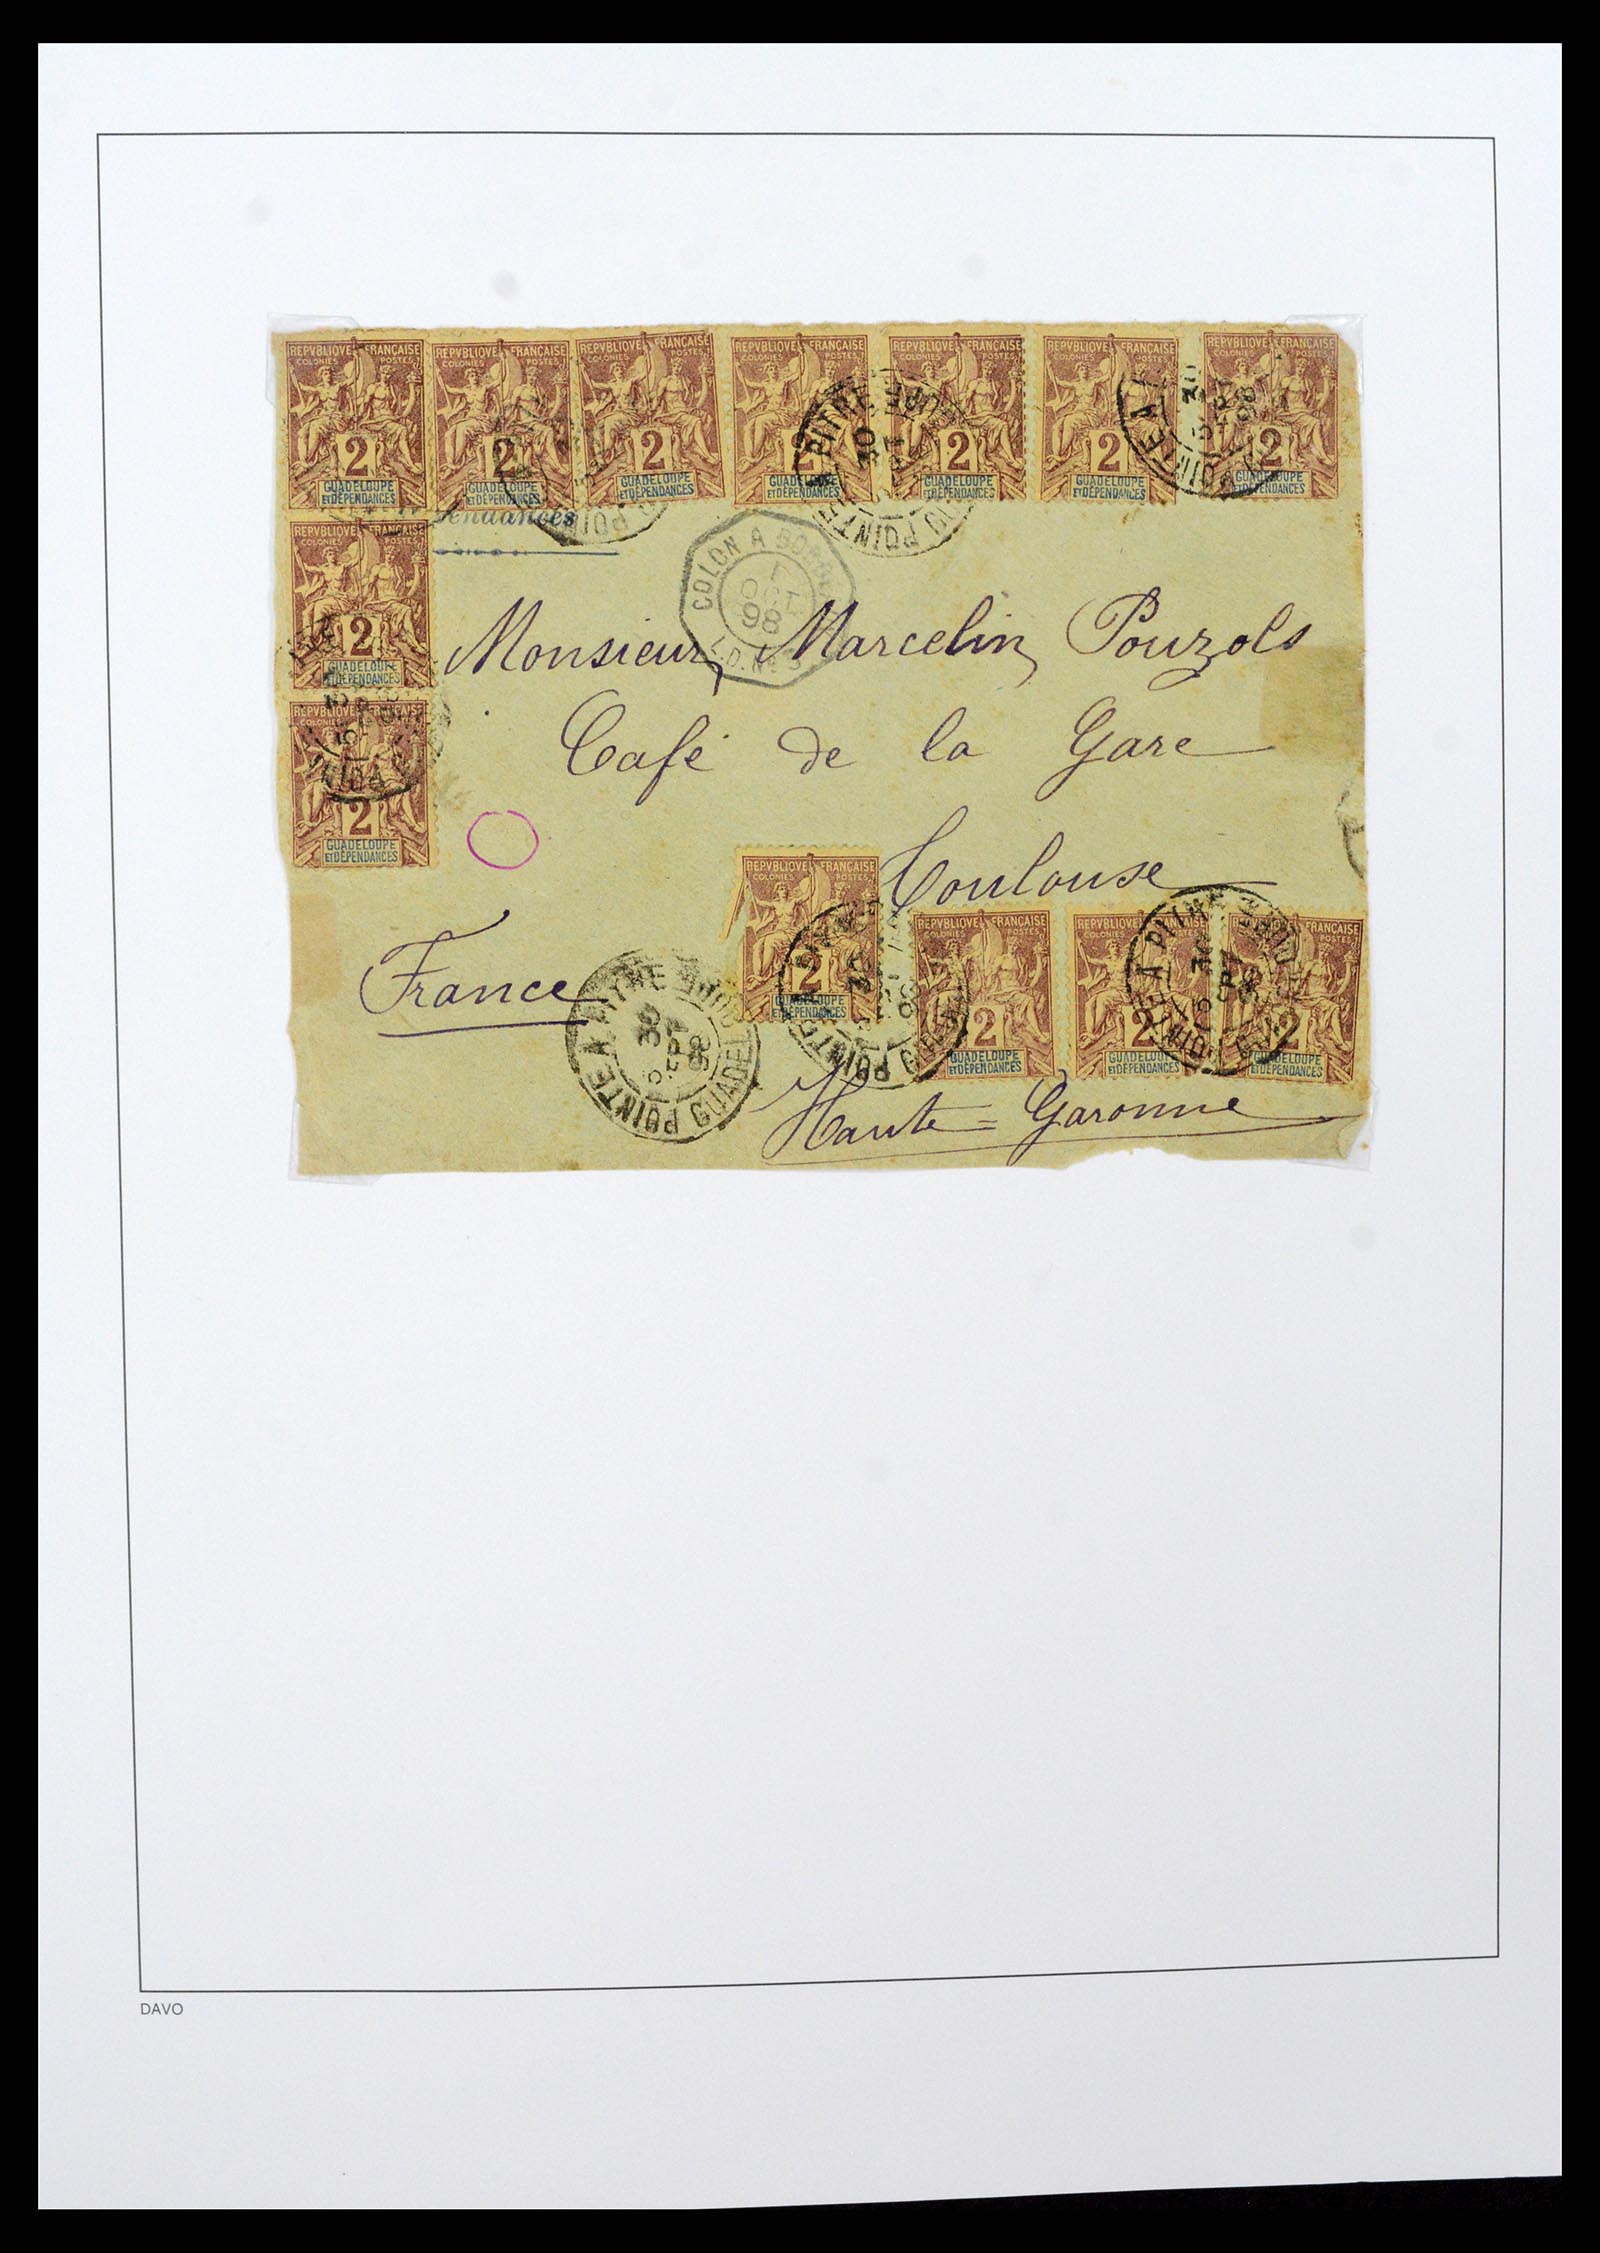 REPVBLIQVE FRANÇAISE REPVBLIQVE FRANÇAISE REPVBLIQVE FRANÇAISE REPVBLIQVE FRANÇAISE REPVBLIQVE FRANÇAISE REPVBLIQVE FRANÇAISE REPVBLIQVE FRANÇAISE
COLONIES POSTES COLONIES POSTES COLONIES POSTES COLONIES POSTES COLONIES POSTES COLONIES POSTES COLONIES POSTES
2 2 2 2 2 2 2
GUADELOUPE GUADELOUPE GUADELOUPE GUADELOUPE GUADELOUPE GUADELOUPE GUADELOUPE
ET DÉPENDANCES ET DÉPENDANCES ET DÉPENDANCES ET DÉPENDANCES ET DÉPENDANCES ET DÉPENDANCES ET DÉPENDANCES
REPVBLIQVE FRANÇAISE
COLONIES POSTES
2
GUADELOUPE
ET DÉPENDANCES
COLON A
OCT
98
L.D. No 3
Monsieur Marcelin Pouzols
REPVBLIQVE FRANÇAISE
COLONIES POSTES
2
GUADELOUPE
ET DÉPENDANCES
Café de la Gare
Toulouse
France
REPVBLIQVE FRANÇAISE
COLONIES POSTES
2
GUADELOUPE
ET DÉPENDANCES
REPVBLIQVE FRANÇAISE REPVBLIQVE FRANÇAISE REPVBLIQVE FRANÇAISE
COLONIES POSTES COLONIES POSTES COLONIES POSTES
2 2 2
GUADELOUPE GUADELOUPE GUADELOUPE
ET DÉPENDANCES ET DÉPENDANCES ET DÉPENDANCES
POINTE A PITRE
30
SEPT
98
Haute=Garonne
DAVO